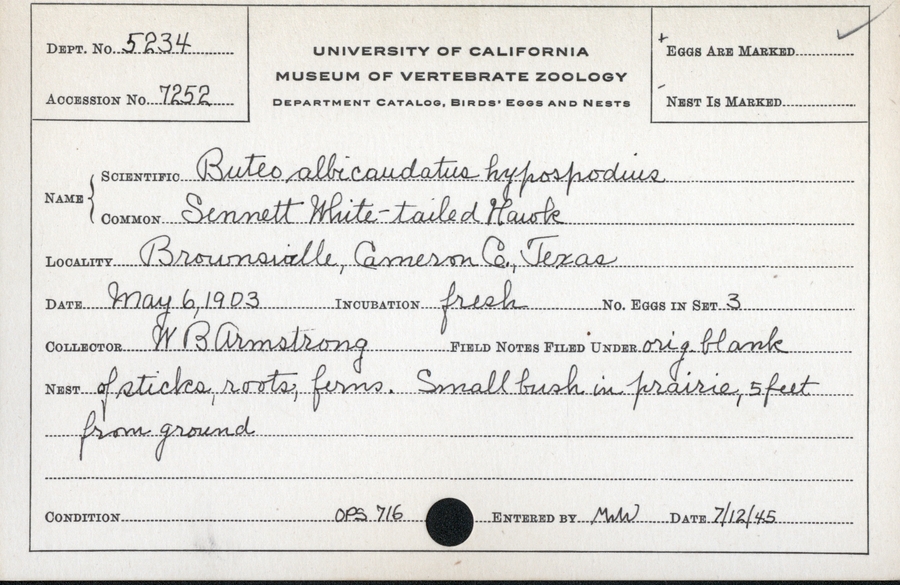 Dept. No. 5234
Accession No. 7252
UNIVERSITY OF CALIFORNIA
MUSEUM OF VERTEBRATE ZOOLOGY
Department Catalog, Birds' Eggs and Nests
+ Eggs Are Marked ✓
- Nest Is Marked
Name { Scientific Buteo albicaudatus hypospodius
Common Sennett White-tailed Hawk
Locality Brownsville, Cameron Co., Texas
Date May 6, 1903 Incubation fresh No. Eggs in Set 3
Collector W B Armstrong Field Notes Filed Under orig. blank
Nest of sticks, roots, ferns. Small bush in prairie, 5 feet
from ground
Condition OPS 716 Entered by MWW Date 7/12/45